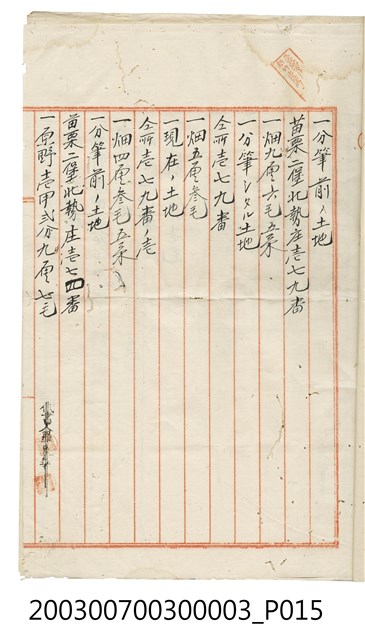 一分筆前ノ土地
苗栗二堡北勢庄壱七九番
一畑九厘六毛五糸
一分筆シタル土地
仝所壱七九番
一畑五厘参毛
一現在ノ土地
仝所壱七九番ノ壱
一畑四厘参毛五糸
一分筆前ノ土地
苗栗二堡北勢庄壱七四番
一原野壱甲弐分九厘七毛
200300700300003_P015